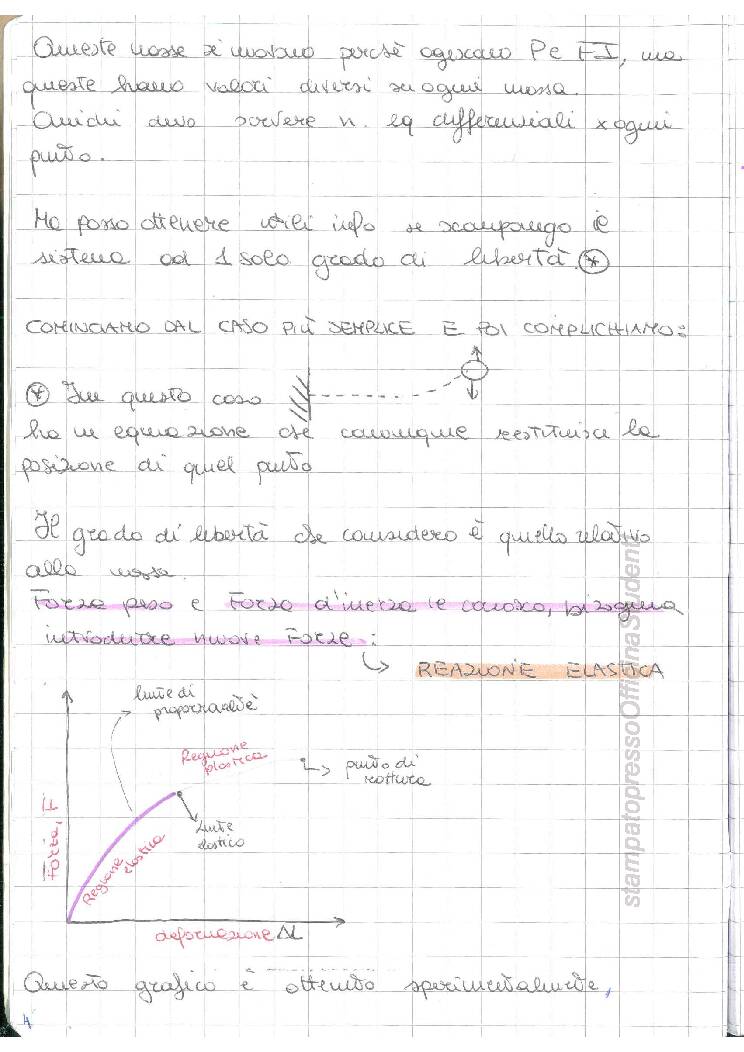 Queste masse si muovono perchè agiscono P e FI, ma
queste hanno valori diversi su ogni massa.
Quindi devo scrivere n. eq differenziali x ogni
punto.
Ma posso ottenere utili info se scompongo il
sistema ad 1 solo grado di libertà. *
COMINCIAMO DAL CASO PIÙ SEMPLICE E POI COMPLICHIAMO:
* In questo caso
ho un equazione che comunque restituisce la
posizione di quel punto
Il grado di libertà che considero è quello relativo
alla massa.
Forza peso e Forza d'inerzia le conosco, bisogna
introdurre nuove Forze:
REAZIONE ELASTICA
limite di
proporzionalità
Regione
plastica
punto di
rottura
Forza, F
Limite
elastico
Regione
elastica
deformazione ΔL
Questo grafico è ottenuto sperimentalmente,
4
stampatopressoOfficinaStudenti